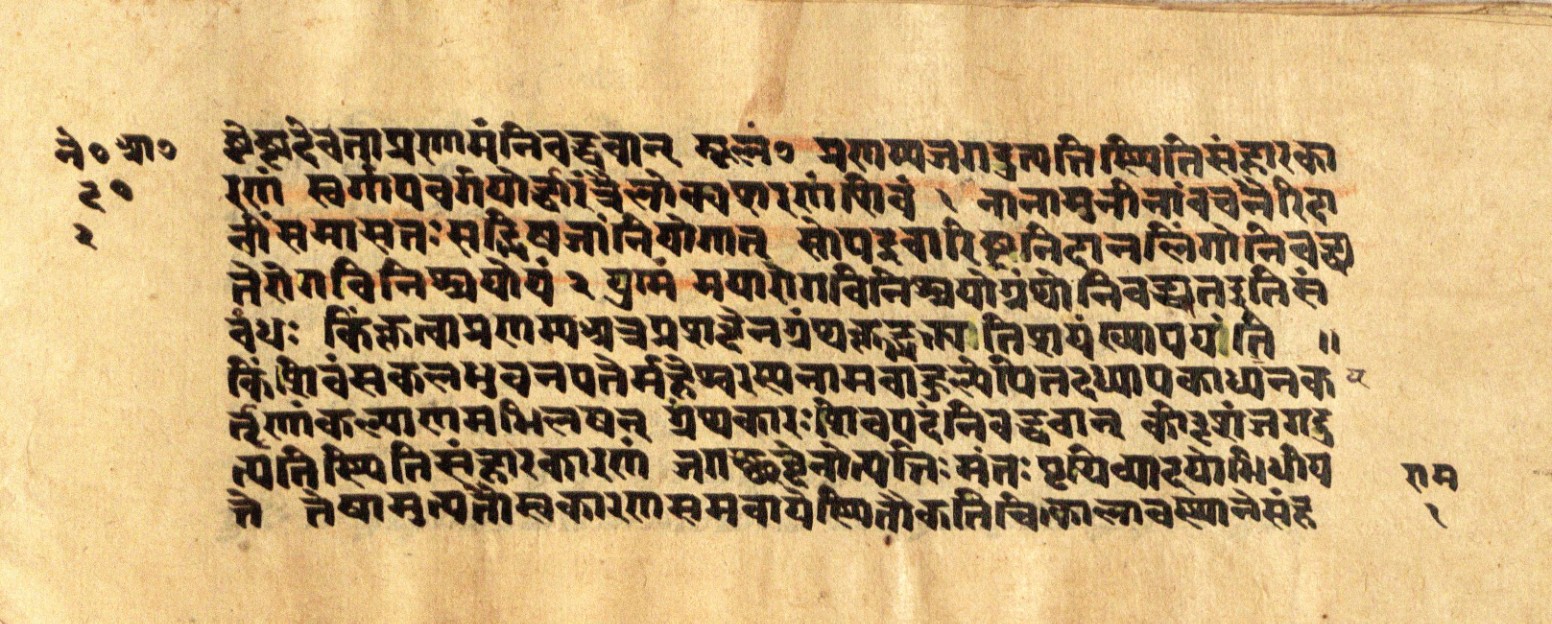 ने० भा०
टी०
२
ष्टेष्टदेवताप्रणामंनिवद्धवान् मूलं० प्रणम्यजगदुत्पत्तिस्थितिसंहारका
रणं स्वर्गापवर्गयोर्द्वारंत्रैलोक्यशरणंशिवं १ नानामुनीनांवचनैरिदा
नींसमासतःसद्भिषजांनियोगात् सोपद्रवारिष्टनिदानलिंगोनिवध्य
तेरोगविनिश्चयोयं २ प्रामं मयारोगविनिश्चयोग्रंथोनिवद्ध्यतइतिसं
वंधः किंकृत्वाप्रणम्यअत्रप्रशब्देनग्रंथकृद्भक्त्यातिशयंख्यापयंति ॥
किंशिवंसकलभुवनपतेर्महैश्वरस्यनामवाहुल्येपितदध्यापकाध्यनक
र्तृणांकल्याणमभिलषन् ग्रंथकारःशिवपदंनिवद्धवान् कीदृशंजगदु
त्पत्तिस्थितिसंहारकारणं जगच्छब्देनोत्पत्तिःमंतःपृथिव्यादयोभिधीय
ते तेषामुत्पतौस्वकारणसमवायेस्थितौकतिचित्कालावस्थानेसंह
राम
१